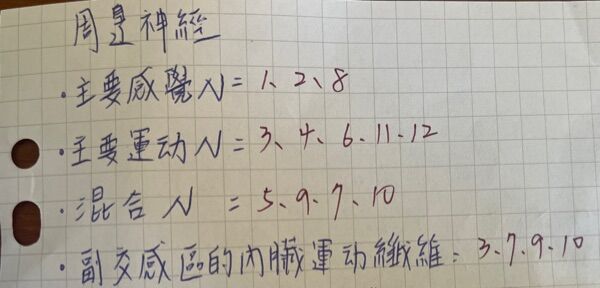 周邊神經
·主要感覺N=1、2、8
·主要運动N=3、4、6、11、12
·混合N=5、9、7、10
·副交感區的內臟運动纖維:3、7、9、10